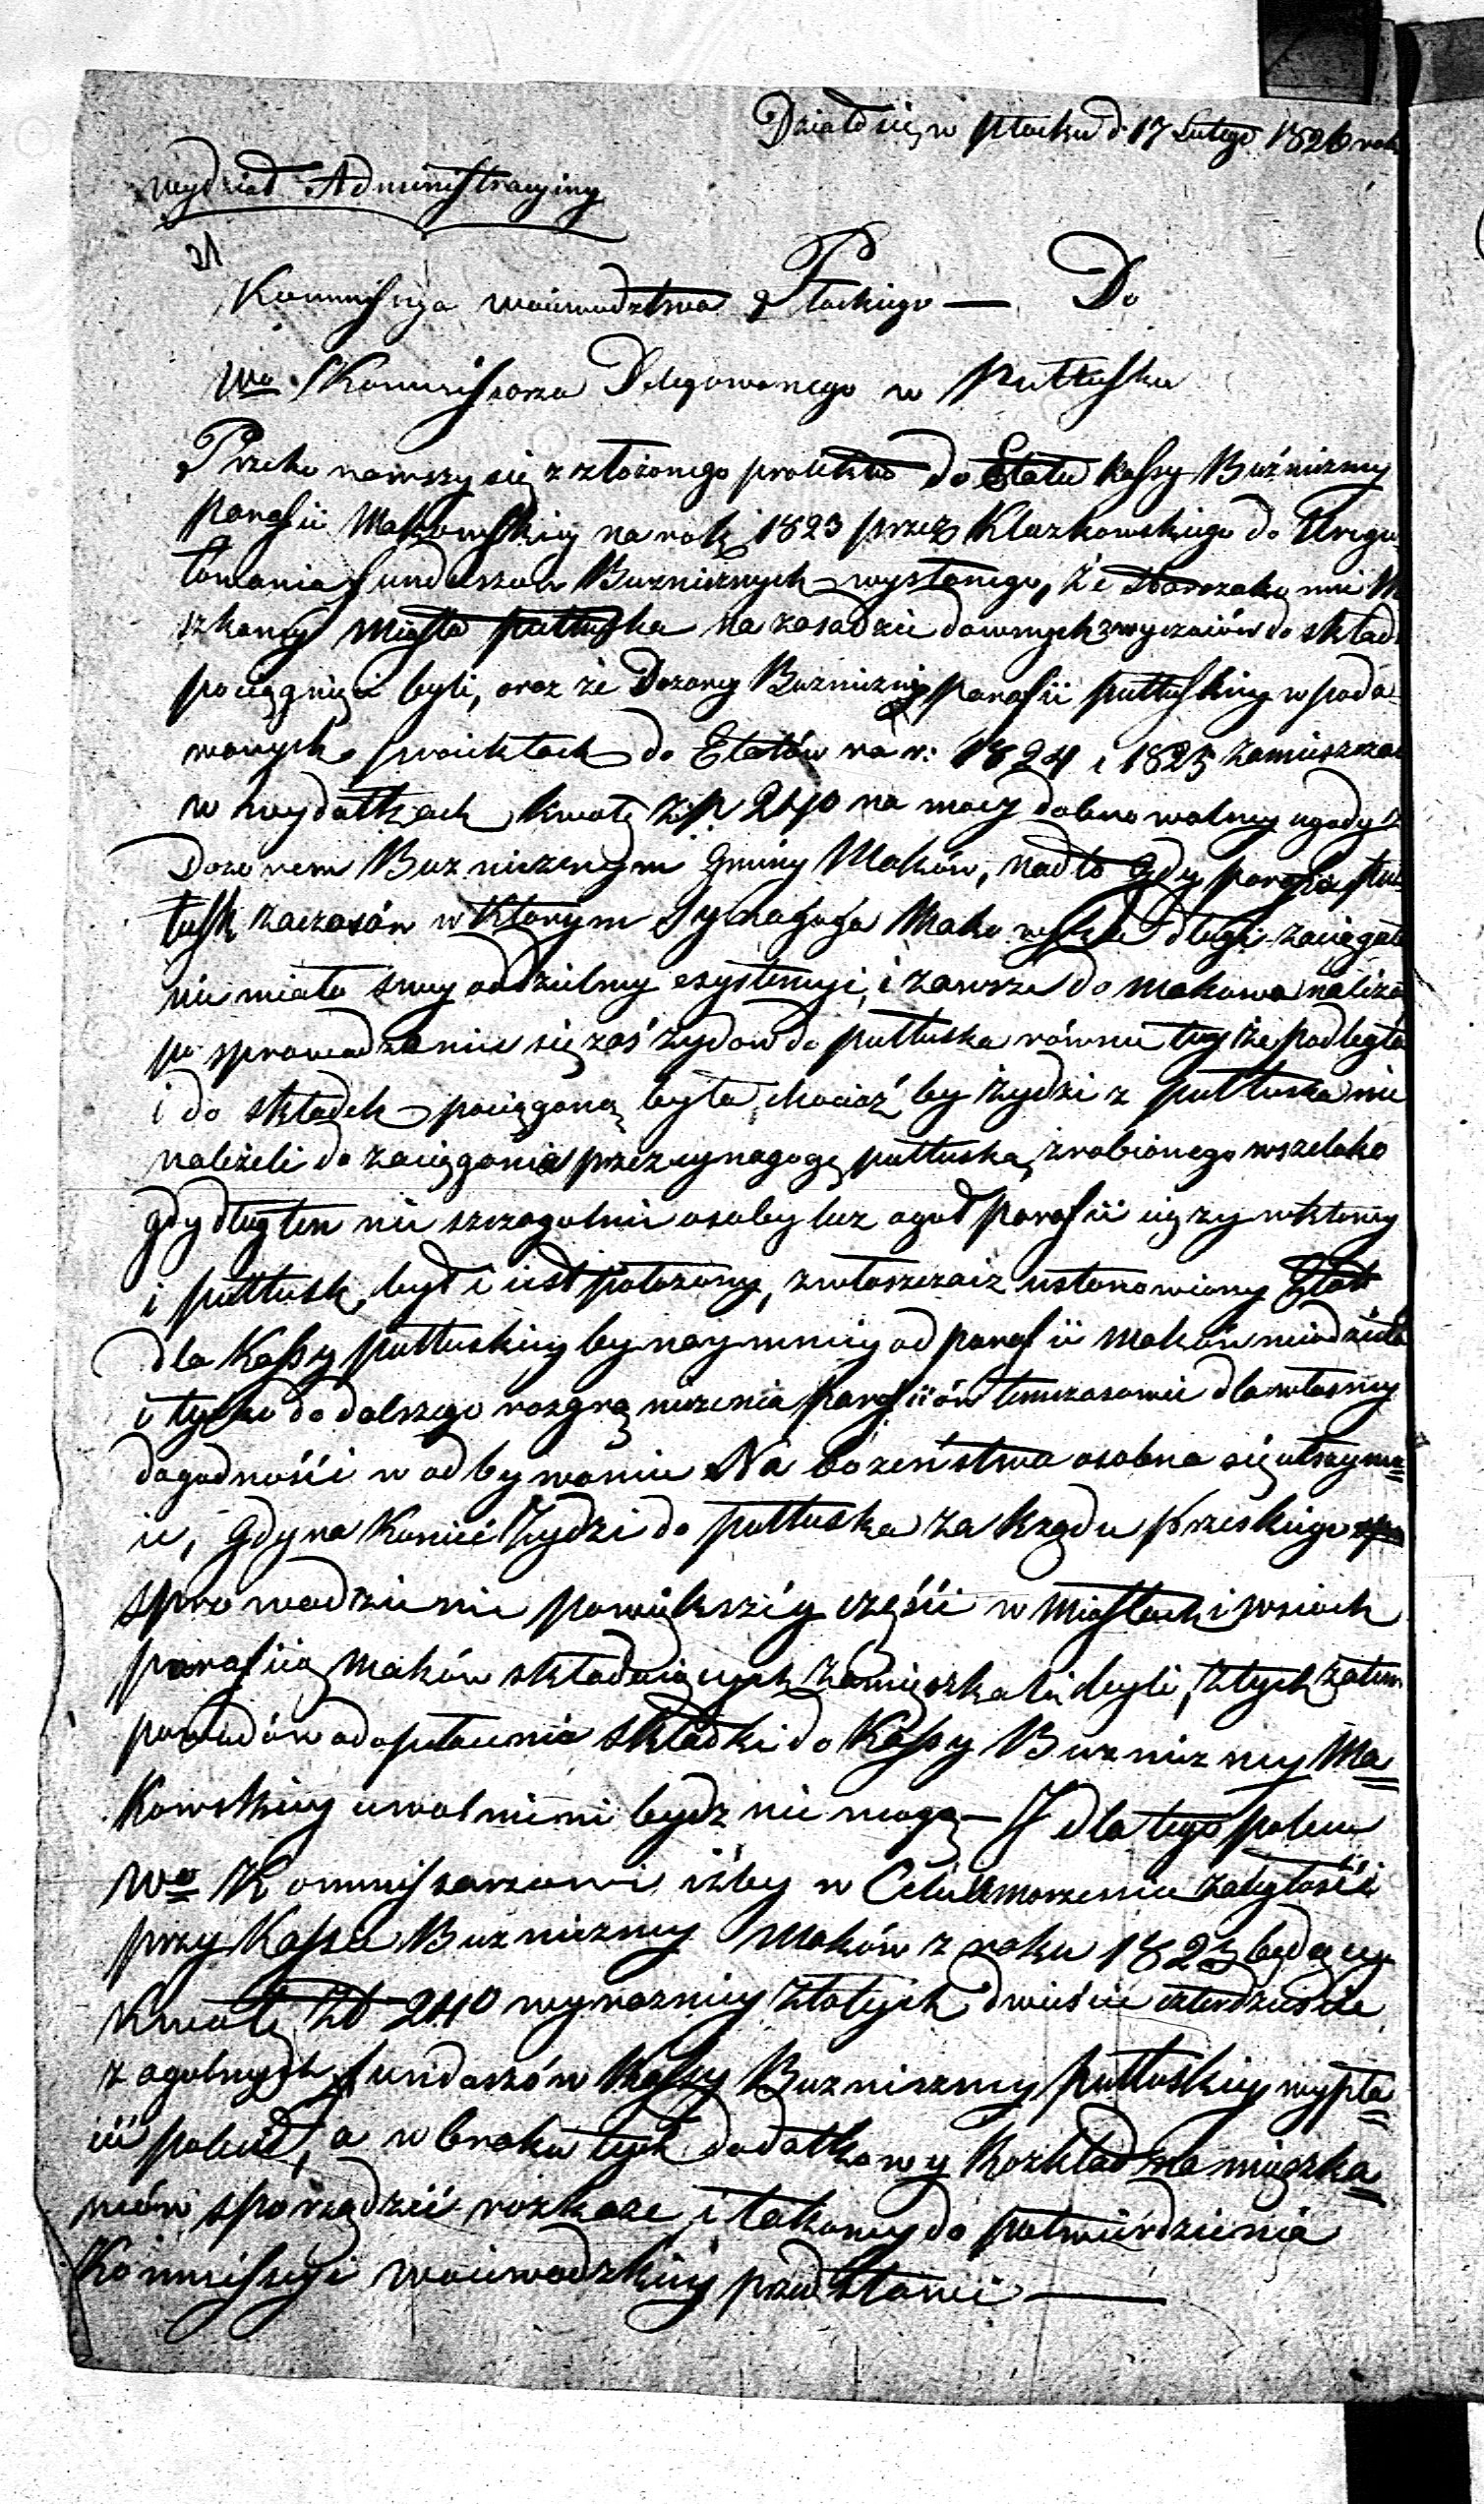 Działo się w Płocku d. 17 Lutego 1826 roku
Wydział Administracyiny
Kommissya Woiewodztwa Płockiego — Do
Wo Kommissarza Delegowanego w Pułtusku
Przekonawszy się z złożonego proiektu do Etatu Kassy Bóźniczney
parafii Makowskiey na rok 1823 przez Klazkowskiego do Uregu
lowania funduszów Buznicznych wysłanego, że Starozakonni Mi
szkancy Miasta Pułtuska na zasadzie dawnych zwyczaiów do składk
pociągnięci byli, oraz że Dozory Buzniczny parafii Pułtuskiey w poda
wanych proiektach do Etatów na r: 1824 i 1825 zamieszczał
w wydatkach kwotę Złp 240 na mocy dobrowolney ugody z
Dozorem Buzniczngm Gminy Maków, nadto gdy parafia Puł
tusk za czasów w którym Synagoga Makowska długi zaciągała
nie miała swey oddzielney exystencyi, i zawsze do Makowa należała
po sprowadzeniu się zaś żydow do Pułtuska równie teyże podległa
i do składek pociąganą była, chociaż by żydzi z Pułtuska nie
należeli do zaciągania przez synagogę Pułtuską zrobionego wszelako
gdy dług ten nie szczegolnie osoby lecz ogół parafii ciąży w ktorey
i Pułtusk był i iest położony, zwłaszcza iż ustanowiony Etat
dla Kassy Pułtuskiey bynaymniey od parafii Maków nie dziela
i tylko do dalszego rozgraniczenia Parafiiów tymczasowie dla własney
dogodności w odbywaniu Nabożeństwa osobno się utrzymu
ie, gdy na koniec Żydzi do Pułtuska za Rządu Pruskiego
sprowadzeni po większéy części w Miastach i wsiach
parafiią Maków składaiących zamieszkali byli, z tych zatem
powodów od opłacenia składki do Kassy Buzniczney Ma
kowskiey uwolnieni bydz nie mogą — I dla tego poleca
Wo Kommissarzowi iżby w Celu umorzenia zaległości
przy Kassie Buzniczney Maków z roku 1823 będącey
Kwotę Zł 240 wyrazniey złotych dwieście czterdzieście
z ogolnych funduszów Kassy Buzniczney Pułtuskiey wypła
cić polecił, a w braku tych dodatkowy Rozkład na mieszka
ńców sporządzić rozkaże, i takowy do potwierdzenia
Kommissyi Woiewodzkiey przedstawi —